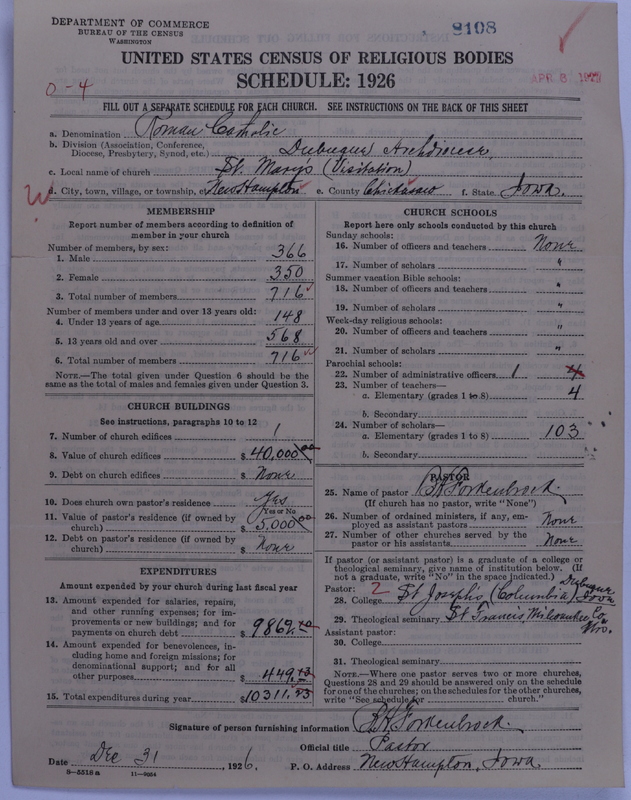 DEPARTMENT OF COMMERCE
BUREAU OF THE CENSUS
WASHINGTON
9108
UNITED STATES CENSUS OF RELIGIOUS BODIES
SCHEDULE: 1926
O-4
APR 8 1927
FILL OUT A SEPARATE SCHEDULE FOR EACH CHURCH. SEE INSTRUCTIONS ON THE BACK OF THIS SHEET
a. Denomination Roman Catholic
b. Division (Association, Conference, Diocese, Presbytery, Synod, etc.) Dubuque Archdiocese
c. Local name of church St. Mary's (Visitation)
d. City, town, village, or township, etc. New Hampton e. County Chickasaw f. State Iowa.
MEMBERSHIP
Report number of members according to definition of
member in your church
Number of members, by sex:
1. Male 366
2. Female 350
3. Total number of members 716
Number of members under and over 13 years old:
4. Under 13 years of age 148
5. 13 years old and over 568
6. Total number of members 716
NOTE.—The total given under Question 6 should be
same as the total of males and females given under Question 3.
CHURCH BUILDINGS
See instructions, paragraphs 10 to 12
7. Number of church edifices 1
8. Value of church edifices $ 40,000 00
9. Debt on church edifices $ None
10. Does church own pastor's residence Yes
Yes or No
11. Value of pastor's residence (if owned by
church) $ 5,000 00
12. Debt on pastor's residence (if owned by
church) $ None
EXPENDITURES
Amount expended by your church during last fiscal year
13. Amount expended for salaries, repairs,
and other running expenses; for im-
provements or new buildings; and for
payments on church debt $ 9862.10
14. Amount expended for benevolences, in-
cluding home and foreign missions; for
denominational support; and for all
other purposes $ 449.13
15. Total expenditures during year $ 10311.23
CHURCH SCHOOLS
Report here only schools conducted by this church
Sunday schools:
16. Number of officers and teachers None
17. Number of scholars "
Summer vacation Bible schools:
18. Number of officers and teachers "
19. Number of scholars "
Week-day religious schools:
20. Number of officers and teachers "
21. Number of scholars "
Parochial schools:
22. Number of administrative officers 1 4
23. Number of teachers—
a. Elementary (grades 1 to 8) 4
b. Secondary
24. Number of scholars—
a. Elementary (grades 1 to 8) 103
b. Secondary
PASTOR
25. Name of pastor
(If church has no pastor, write "None")
26. Number of ordained ministers, if any, em-
ployed as assistant pastors None
27. Number of other churches served by the
pastor or his assistants None
If pastor (or assistant pastor) is a graduate of a college or
theological seminary, give name of institution below. (If
not a graduate, write "No" in the space indicated.)
Pastor: 2
28. College St Josephs (Columbia) Dubuque Iowa
29. Theological seminary St Francis, Milwaukee Co. Wis.
Assistant pastor:
30. College
31. Theological seminary
NOTE.—Where one pastor serves two or more churches,
Questions 28 and 29 should be answered only on the schedule
for one of the churches; on the schedules for the other churches,
write "See schedule for church."
Signature of person furnishing information
Official title Pastor
Date Dec 31, 1926, P. O. Address New Hampton, Iowa
8—5518 a 11—9054